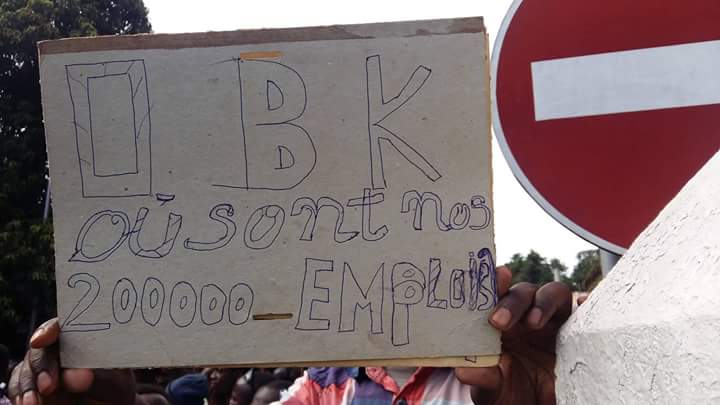 OBK
OÙ sont nos
200000 EMPLOIS